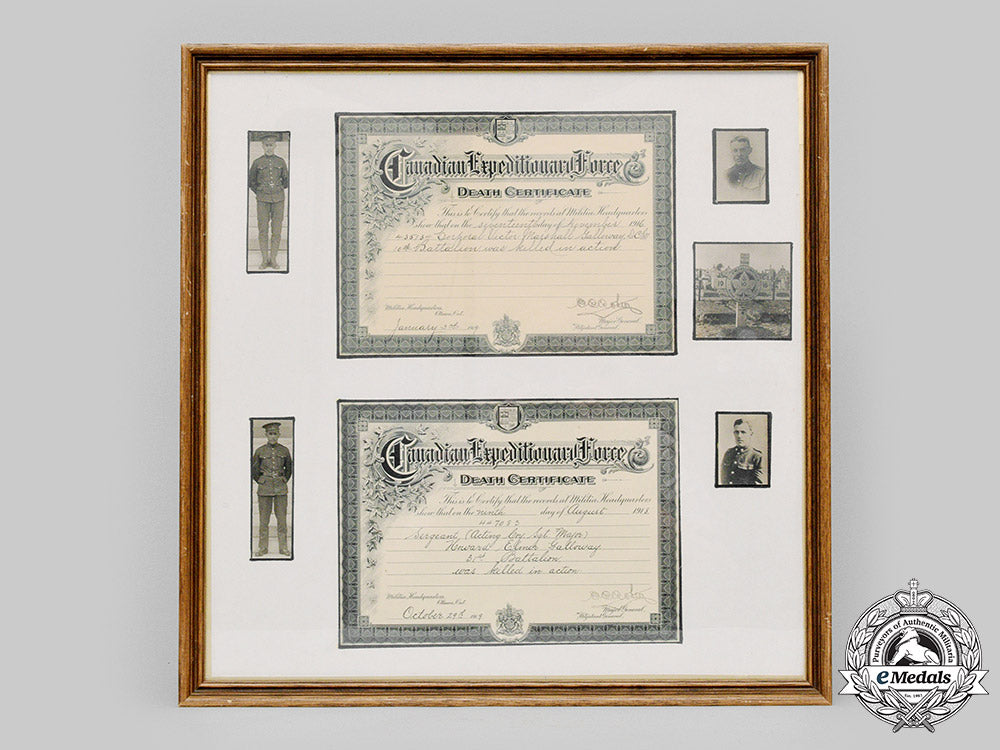 Canadian Expeditionary Force
DEATH CERTIFICATE
This is to Certify that the records at Militia Headquarters
show that on the seventeenth day of November 1916
Corporal Victor Marshall Galloway
Battalion was killed in action
Militia Headquarters,
Ottawa, Ont.
January 1919
Major General,
Adjutant General.
Canadian Expeditionary Force
DEATH CERTIFICATE
This is to Certify that the records at Militia Headquarters
show that on the ninth day of August 1918
447053
Sergeant (Acting Coy. Sgt. Major)
Howard Elmer Galloway
31st Battalion
was killed in action
Militia Headquarters,
Ottawa, Ont.
October 29th 1919
Major General,
Adjutant General.
Purveyors of Authentic Militaria
eMedals